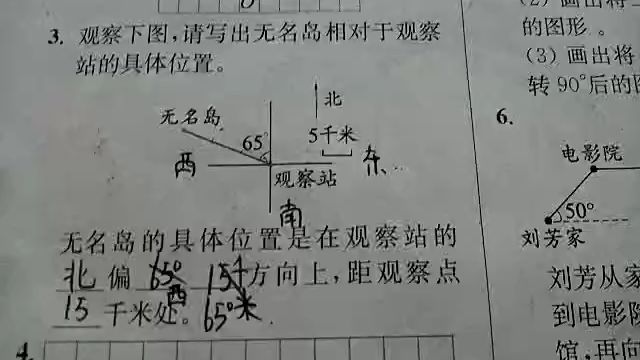 3. 观察下图,请写出无名岛相对于观察
站的具体位置。
北
无名岛
65°
5千米
西
东
观察站
南
无名岛的具体位置是在观察站的
北偏65°西 方向上,距观察点
15千米处。65°
4.
的图形。
(3) 画出将
转90°后的图
6.
电影院
50°
刘芳家
刘芳从家
到电影院
馆,再向